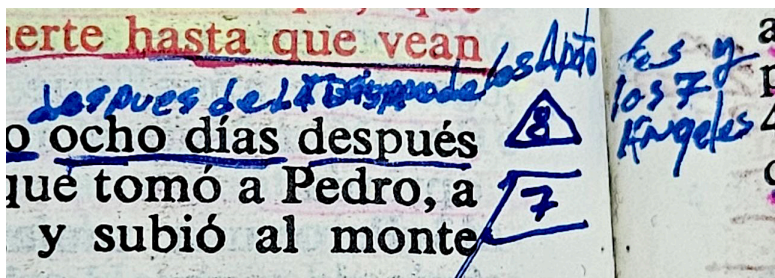 erte hasta que vean
despues de la
los Apto
o ocho días después
8
que tomó a Pedro, a
7
y subió al monte
fes y
los 7
Angeles